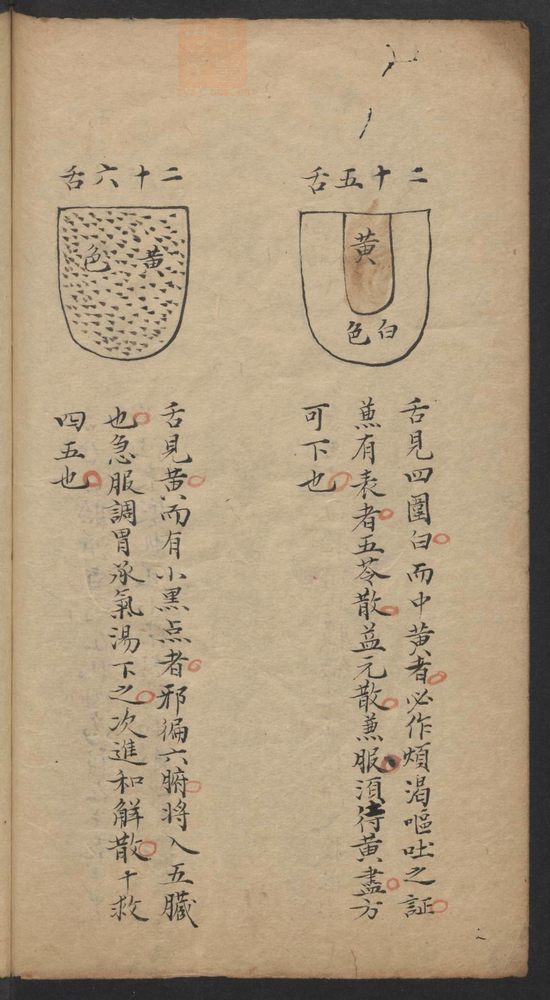 二十五舌
黄
白色
舌見四圍白而中黄者必作煩渴嘔吐之証
蕉有表者五苓散益元散蕉服須待黄盡方
可下也
二十六舌
黄色
舌見黄而有小黑点者邪徧六腑將入五臟
也急服調胃承氣湯下之次進和解散十救
四五也